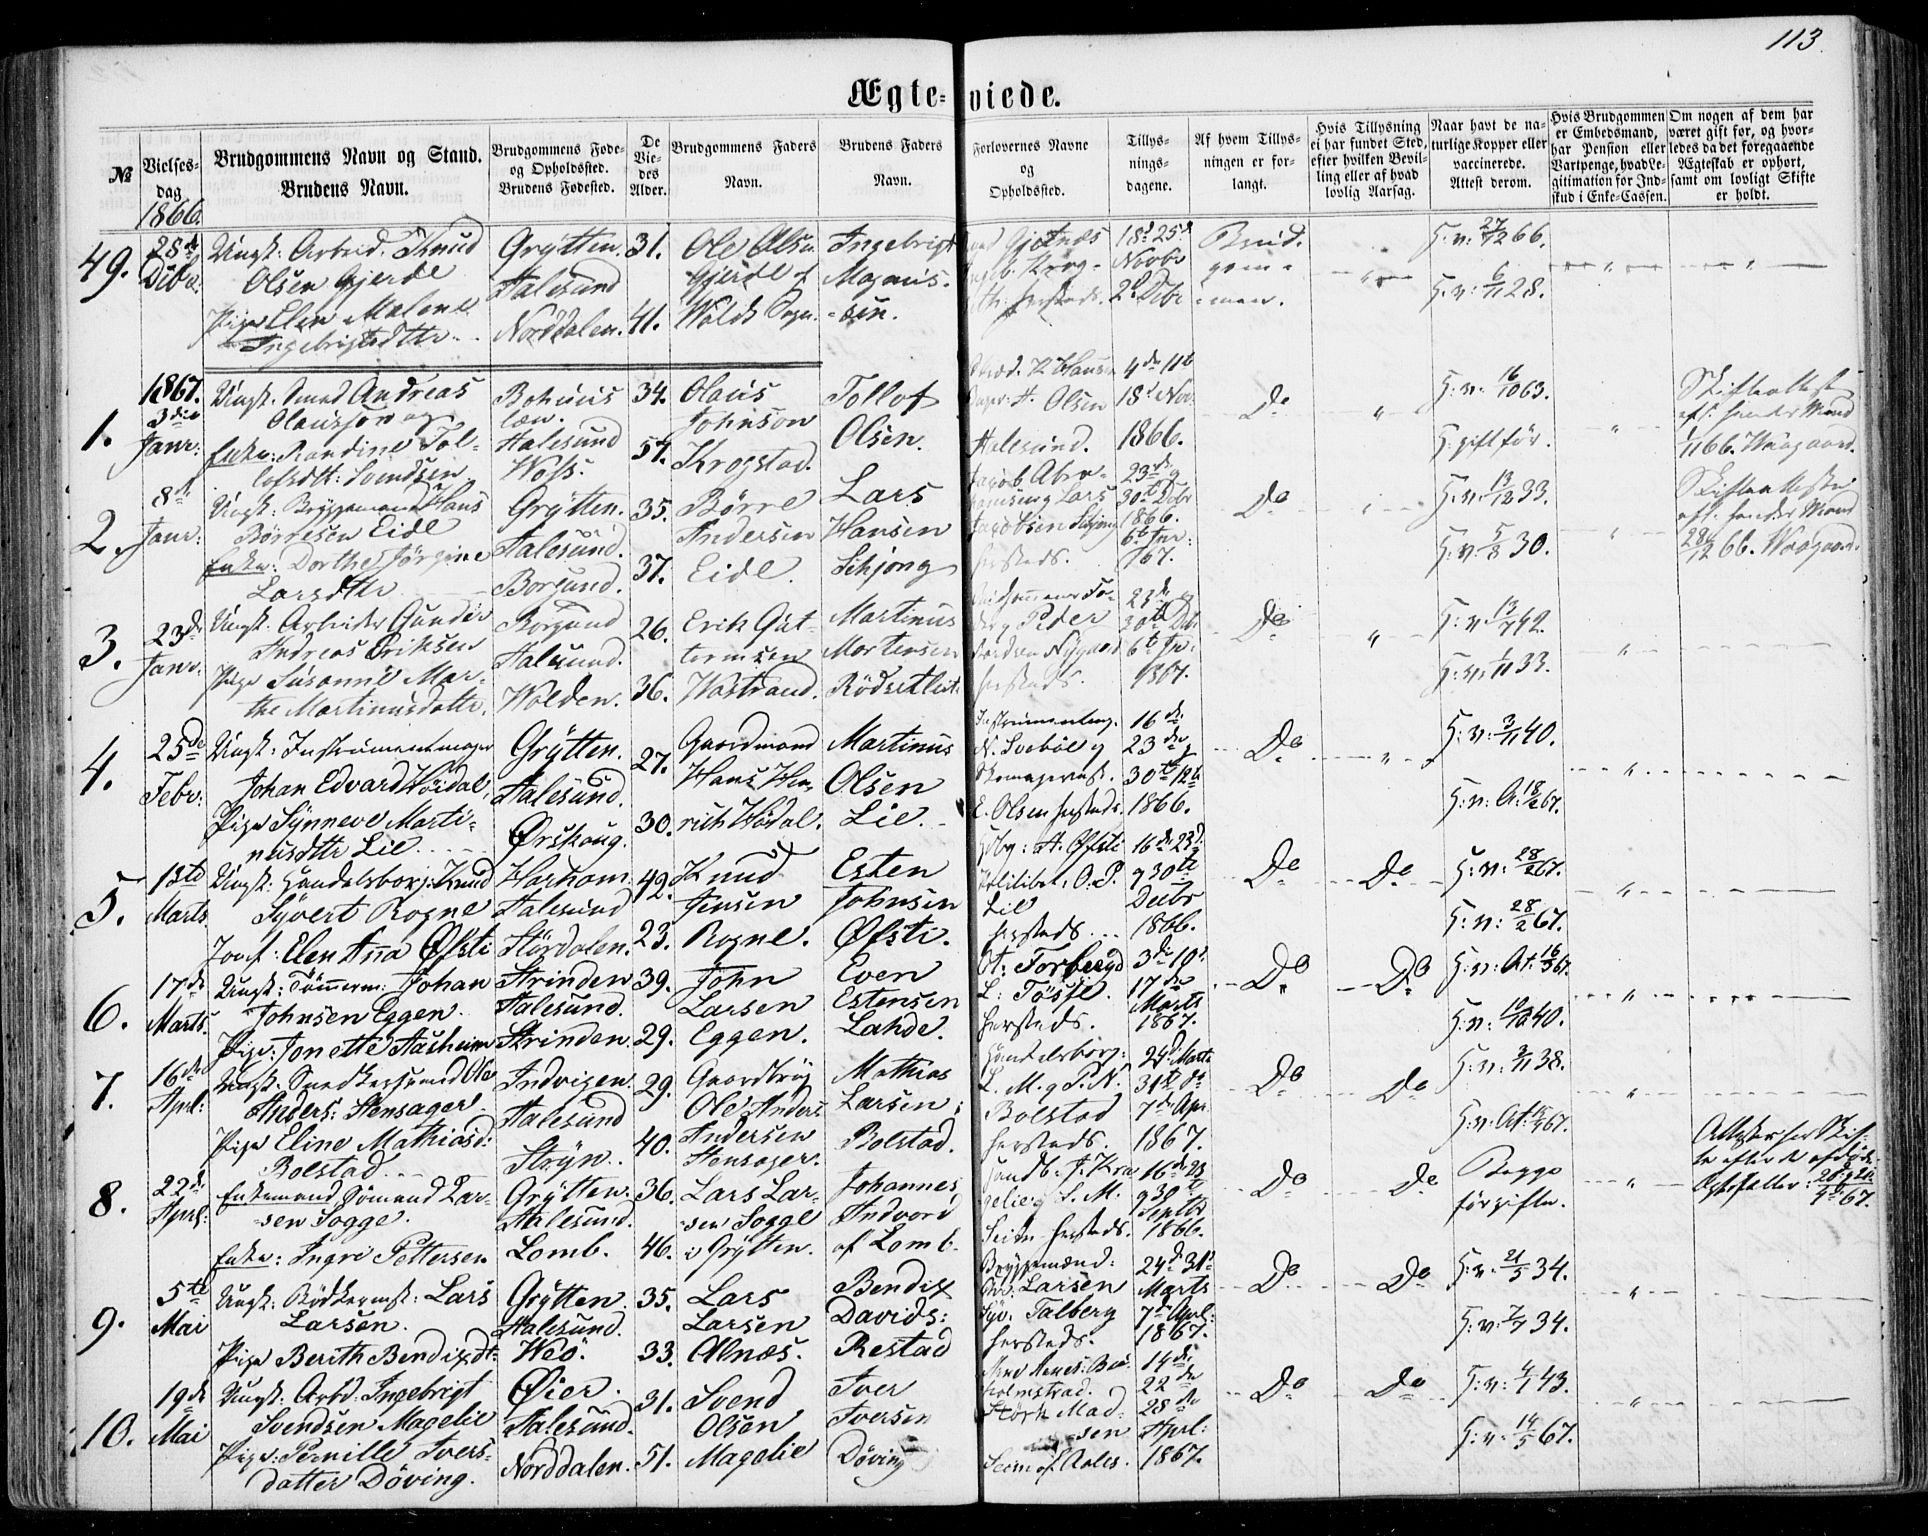 113.
Ægteviede.
№
Vielses-
dag
Brudgommens Navn og Stand.
Brudens Navn.
Brudgommens Føde-
og Opholdssted.
Brudens Fødested.
De
Vie-
des
Alder.
Brudgommens Faders
Navn.
Brudens Faders
Navn.
Forlovernes Navne
og
Opholdssted.
Tillys-
nings-
dagene.
Af hvem Tillys-
ningen er for-
langt.
Hvis Tillysning
ei har fundet Sted,
efter hvilken Bevil-
ling eller af hvad
lovlig Aarsag.
Naar havt de na-
turlige Kopper eller
vaccinerede.
Attest derom.
Hvis Brudgommen
er Embedsmand,
har Pension eller
Vartpenge, hvad Le-
gitimation for Ind-
skud i Enke-Cassen.
Om nogen af dem har
været gift før, og hvor-
ledes da det foregaaende
Ægteskab er ophørt,
samt om lovligt Skifte
er holdt.
1866.
49.
28de
Debr:
Ungk: Arbeid. Knud
Olsen Gjerde
Pige Elen Malene
Ingebrigtsdtr.
Grytten.
Aalesund
Norddalen.
31.
41.
Ole Olsen
Gjerde af
Wolds Sogn.
Ingebrigt
Magnus-
sen.
18d 25d
Novbr
2d Debr
Brud-
gom-
men.
h: v: 27/12 66.
h: v: 6/11 28.
1867.
1.
3die
Janr:
Ungk. Smed Andreas
Olaussen og
Enke: Randine Tol-
lofsdtr: Svendsen
Bohuus
len.
Aalesund
Woss.
34.
57.
Olaus
Johnson
Krogstad.
Tollof
Olsen.
H. Olsen
Aalesund.
4de 11te
18d Nov
1866.
Do
h: v: 16/10 63.
h: gift før.
Skifteattest
eft: hendes Mand
2.
8de
Janr:
Ungk. Bryggemand Hans
Børresen Eide
Enke: Dorthe Jørgine
Larsdtr
Grytten.
Aalesund.
Borgund.
35.
37.
Børre
Andersen
Eide.
Lars
Hansen
Schjong
Jacob Abra-
hamsen g Lars
Jacobsen Schjong
hersteds.
23de g
30te Debr
1866.
6te Jnr:
1867.
Do
h: v: 13/12 33.
h: v: 5/8 30.
Skifteattest
eft: hendes Mand
3.
23de
Janr.
Ungk. Arbeider Gunder
Andreas Eriksen
Pige Susanne Mar-
the Martinusdatter.
Borgund
Aalesund.
Wolden.
26.
36.
Erik Gut-
tormsen
Wastrand.
Martinus
Mortensen
Rödsetlid.
hersteds.
23de g
30te Debr
6te Jnr.
1867.
Do
h: v: 13/7 42.
h: v: 1/11 33.
4.
25de
Febr:
Ungk: Instrumentmager
Johan Edvard Wördal,
Pige Synneve Marti-
nusdtr Lie.
Grytten.
Aalesund.
Ørskoug.
27.
30.
Gaardmand
Hans Hen-
rich Wördal.
Martinus
Olsen
Lie.
Instrumentmg.
N. Svebøe g
Skomagermst.
E. Olsen hersteds.
16de
23de g
30te 12te
1866.
Do
h: v: 3/11 40.
h: v: A: 18/2 67.
5.
13te
Marts
Ungk: Handelsborg: Knud
Syvert Rogne
Jomf: Elen Anna Øfsti
Harham.
Aalesund
Stördalen.
42.
23.
Knud
Jensen
Rogne.
Esten
Johnsen
Øfsti.
Hdbg: A: Øfsti
Politibet: O. P.
Lie
hersteds.
16de 23d
g 30te
Decbr
1866.
Do
Do
h: v: 28/2 67.
h: v: 28/2 67.
6.
17de
Marts.
Ungk: Tömmerm: Johan
Johnsen Eggen.
Pige: Jonette Aasheim
Strinden
Aalesund.
Strinden.
39.
29.
John
Larsen
Eggen.
Even
Estensen
Lahde.
A: Torbergd
L: Tösse.
hersteds.
3die 10d
17de
Marts
1867.
Do
Do
h: v: At: 16/3 67.
h: v: 10/10 40.
7.
16de
Aprl:
Ungk: Snedkersvend Ole
Anders: Stensager
Pige Eline Mathiasd:
Bolstad
Indvigen.
Aalesund
Stryn.
29.
40.
Gaardbrug
Ole Anders
Andersen
Stensager.
Mathias
Larsen
Bolstad.
Handelsborg:
L. M. g P. N.
Bolstad
hersteds.
24d Marts
31te do
7de Apr
1867.
Do
Do
h: v: 3/11 38.
8.
22de
Aprl:
Enkemand Sömand Lar-
sen Sogge.
Enke: Ingri Pettersen
Grytten.
Aalesund.
Lomb.
36.
46.
Lars Lar-
sen Sogge
i Grytten.
Johannes
Indvord
af Lomb.
hersteds.
16de 23
g 30te
Septbr
1866.
Do
Do
Begge
før gifte.
9.
5te
Mai
Ungk: Bödkermst: Lars
Larsen.
Pige Berith Bendixdt:
Grytten
Aalesund.
Weö.
35.
33.
Lars
Larsen
Alnæs.
Bendix
Davids:
Restad
Bryggemænd:
Larsen
Syv. Talberg
hersteds.
24d 31d
Marts
7de Aprl:
1867.
Do
Do
h: v: 21/5 34.
h: v: 2/7 34.
10.
19de
Mai
Ungk: Arbd. Ingebrigt
Svendsen Magelie
Pige: Pernille Ivers-
datter Döving.
Øier.
Aalesund.
Norddalen.
31.
51.
Svend
Olsen
Magelie
Iver
Iversen
Döving
Holmstrad.
Störk Mad-
sen
14de
22de
28de
Aprl:
1867.
Do
Do
h: v: 4/1 43.
h: v: 14/5 67.